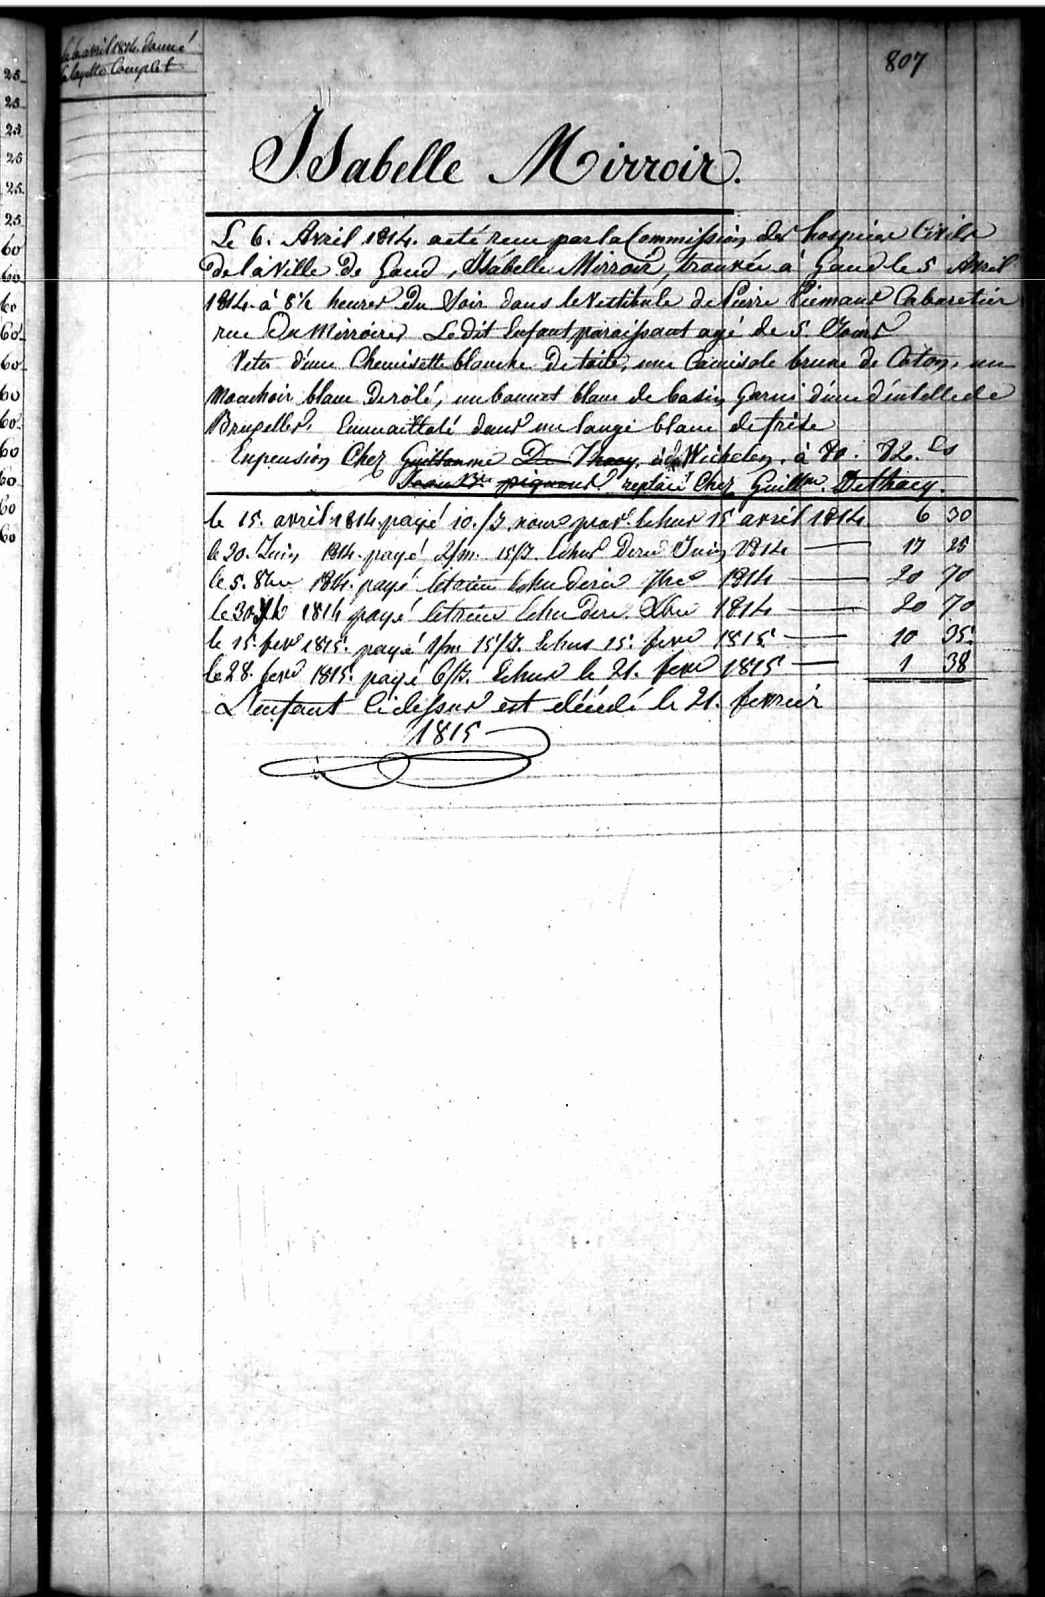 le 6 avril 1814. donné
la layette Complet
807
25
25
25
25
25
25
60
60
60
60
60
60
60
60
60
60
60
Isabelle Mirroir.
Le 6. Avril 1814. a été reçu par la Commission des hospices Civils
de la Ville de Gand, Isabelle Mirroir, trouvée à Gand le 5 Avril
1814. à 8½ heures Du Soir dans le Vestibule de Pierre Cabaretier
rue Du Mirroire Le dit Enfant paraissant agé de 5 Jours
Vetu d'une Chemisette blanche De toile, une Camisole brune de Coton, un
Mouchoir blanc , un bonnet blanc de basin garni d'une dentelle de
Bruxelles, Emmailloté dans un lange blanc de frise
En pension Chez Guillaume De Thaey à Wichelen. à 80. 82. Cs
replacé Chez Guillme. De Thaey.
le 15. avril 1814. payé 10./J. echus 15 avril 1814 6 30
le 30. Juin 1814. payé 2/m. 15/J. Echus Dernr Juin 1814 — 17 25
le 5. 8bre 1814. payé le trim echu dernr 7bre 1814 — 20 70
le 30 1814 payé le trim echu dern. Xbre 1814 — 20 70
le 15. fevr 1815. payé 1/m 15/J. Echus 15. fevr 1815. — 10 35
le 28. fevr 1815. payé 6/J. Echus le 21. fevr 1815 — 1 38
L'enfant Cidessus est décédé le 21. fevrier
1815